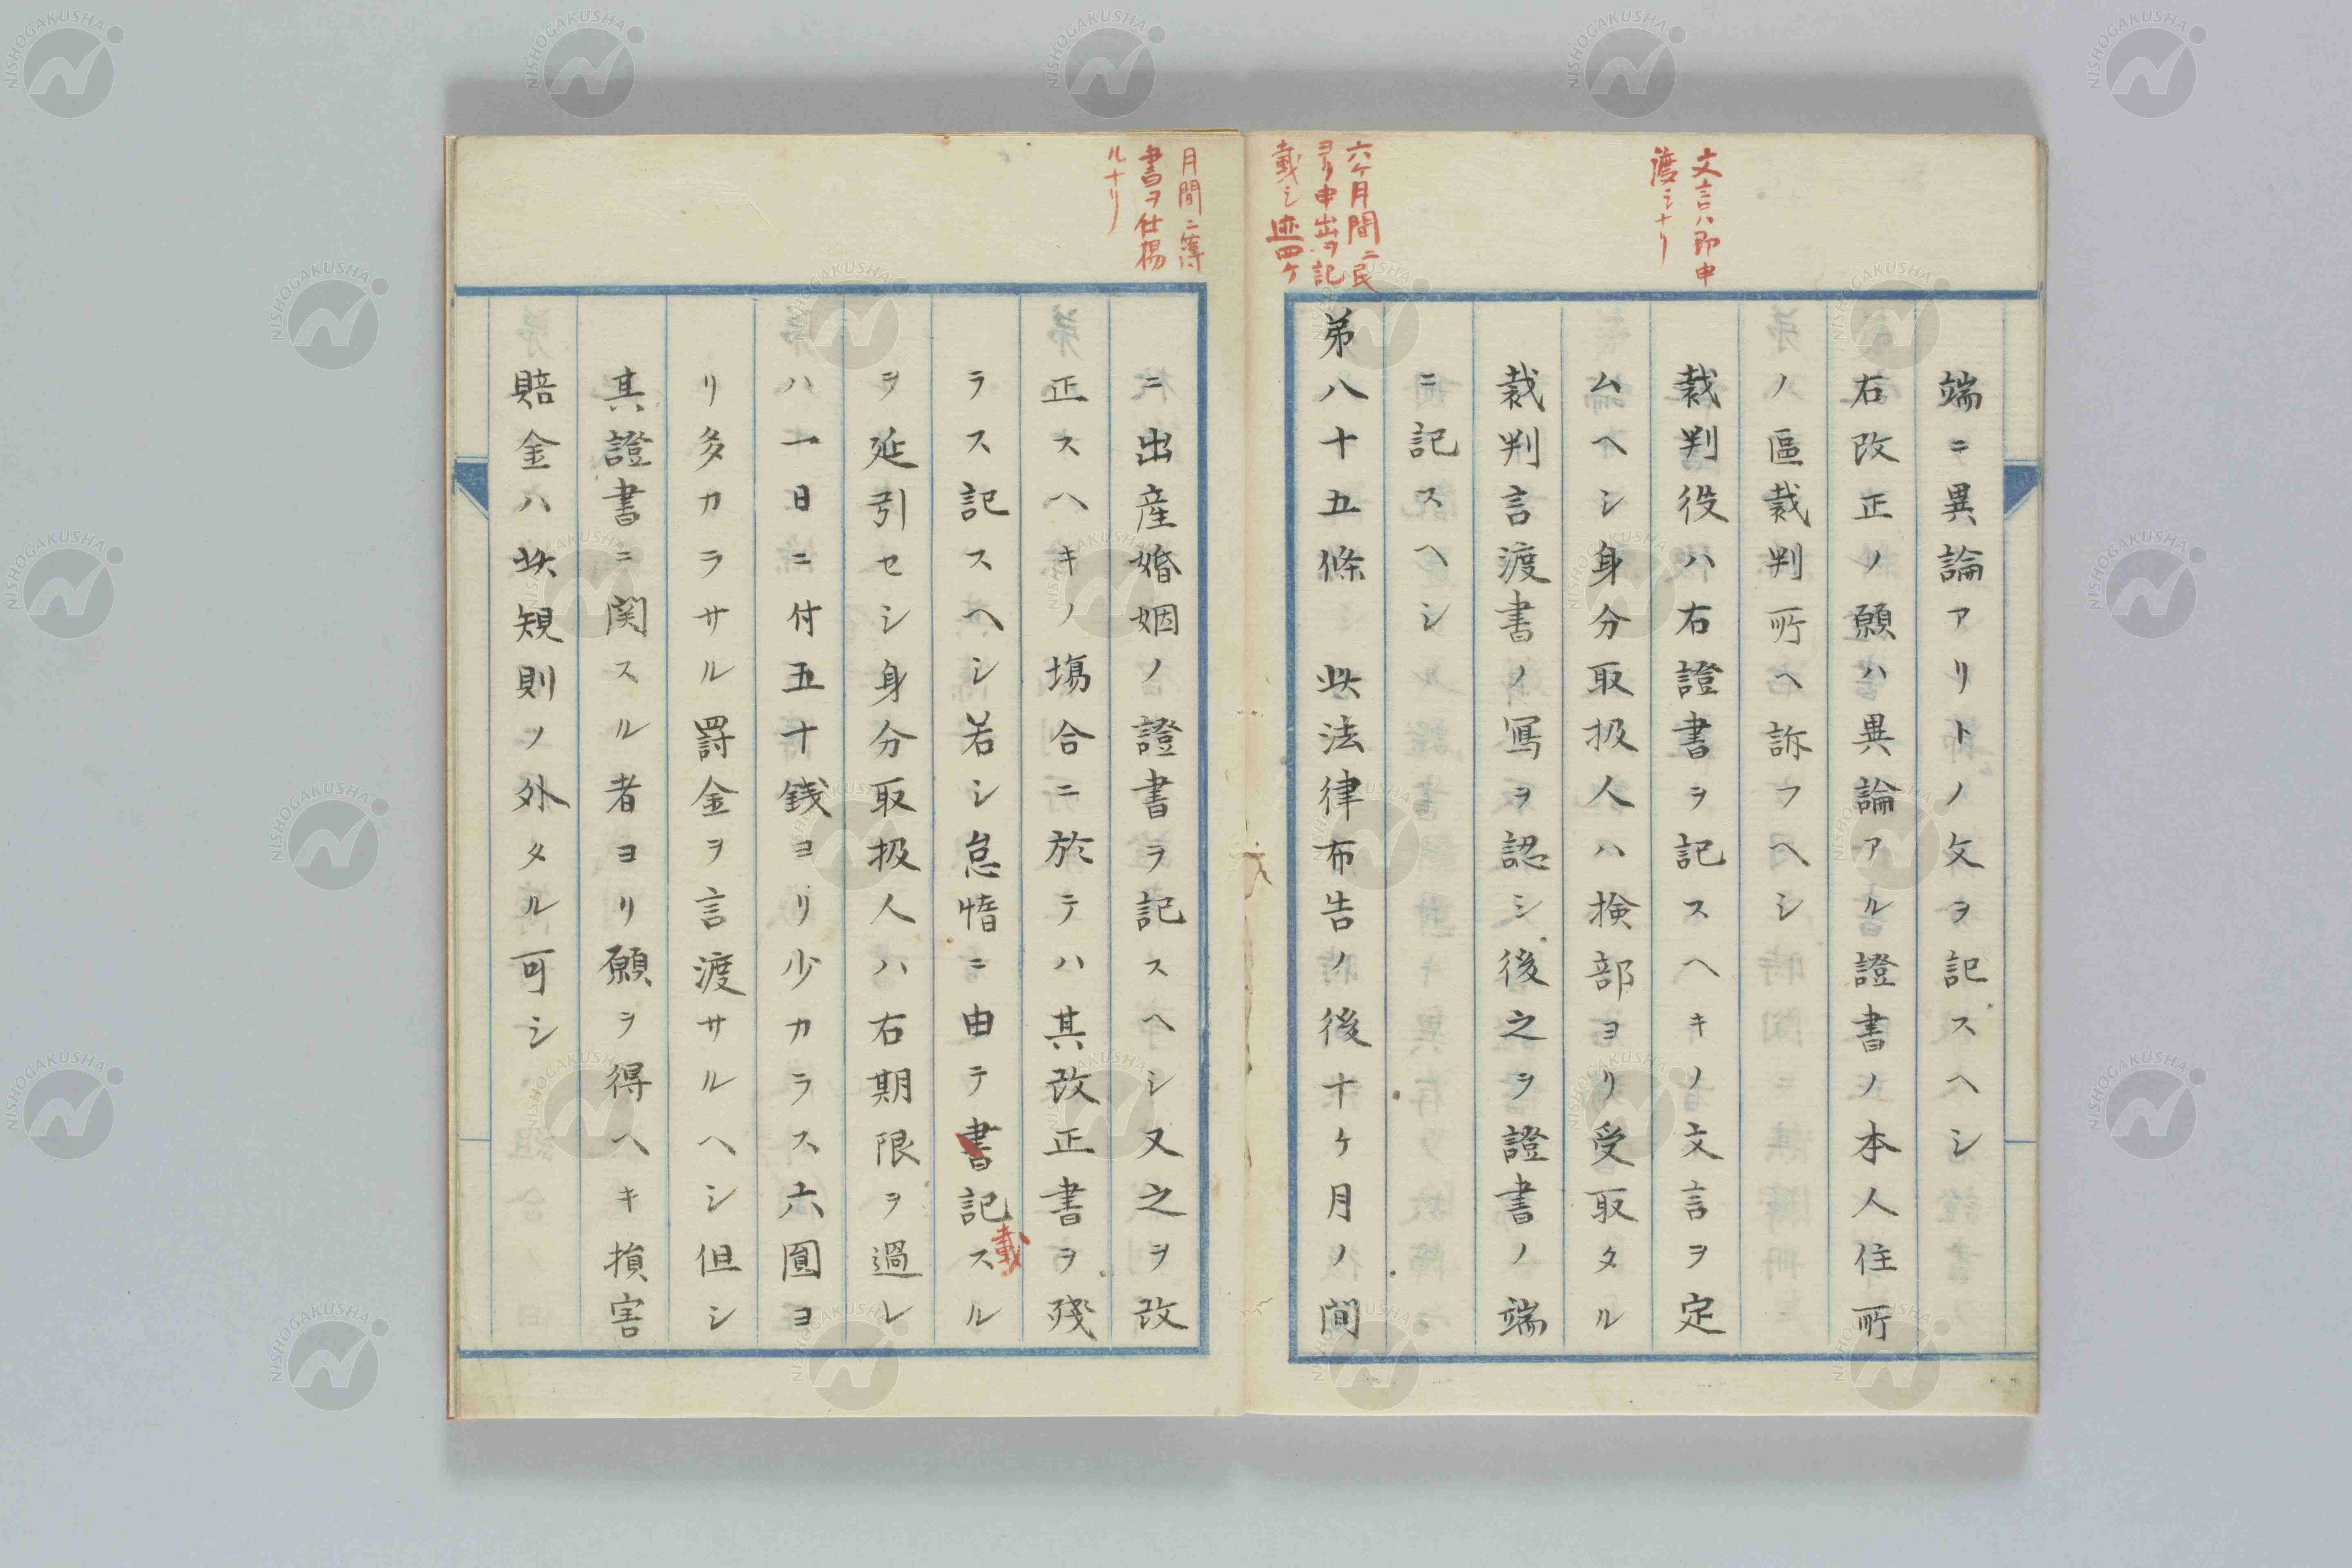 文言ハ即申
渡シナリ
端ニ異論アリトノ文ヲ記スヘシ
右改正ノ願ハ異論アル證書ノ本人住所
ノ區裁判所ヘ訴フヘシ
裁判役ハ右證書ヲ記スヘキノ文言ヲ定
ムヘシ身分取扱人ハ検部ヨリ受取タル
裁判言渡書ノ寫ヲ認シ後之ヲ證書ノ端
ニ記スヘシ
六ケ月間ニ民
ヨリ申出ヲ記
載シ迹四ケ
第八十五條　此法律布告ノ後十ケ月ノ間
月間ニ簿
書ヲ仕揚
ルナリ
ニ出産婚姻ノ證書ヲ記スヘシ又之ヲ改
正スヘキノ場合ニ於テハ其改正書ヲ殘
ラス記スヘシ若シ怠惰ニ由テ書記載スル
ヲ延引セシ身分取扱人ハ右期限ヲ過レ
ハ一日ニ付五十銭ヨリ少カラス六圓ヨ
リ多カラサル罸金ヲ言渡サルヘシ但シ
其證書ニ関スル者ヨリ願ヲ得ヘキ損害
賠金ハ此規則ノ外タル可シ
NISHOGAKUSHA